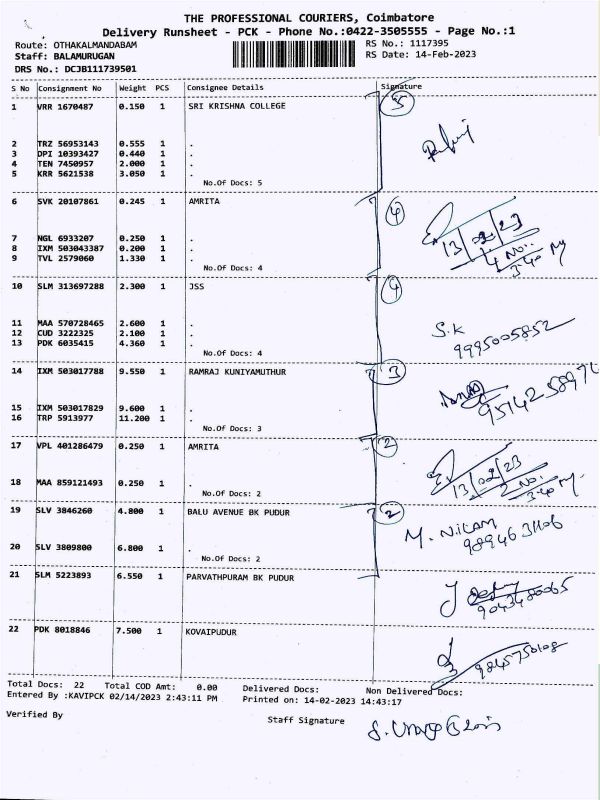 THE PROFESSIONAL COURIERS, Coimbatore
Delivery Runsheet - PCK - Phone No.:0422-3505555 - Page No.:1
Route: OTHAKALMANDABAM RS No.: 1117395
Staff: BALAMURUGAN RS Date: 14-Feb-2023
DRS No.: DCJB111739501
S No Consignment No Weight PCS Consignee Details Signature
1 VRR 1670487 0.150 1 SRI KRISHNA COLLEGE 5
2 TRZ 56953143 0.555 1 .
3 DPI 10393427 0.440 1 .
4 TEN 7450957 2.000 1 .
5 KRR 5621538 3.050 1 .
No.Of Docs: 5
6 SVK 20107861 0.245 1 AMRITA 4
13/02/23
7 NGL 6933207 0.250 1 .
8 IXM 503043387 0.200 1 . 4 No..
9 TVL 2579060 1.330 1 . 3.40
No.Of Docs: 4
10 SLM 313697288 2.300 1 JSS 4
11 MAA 570728465 2.600 1 .
12 CUD 3222325 2.100 1 . S.K
13 PDK 6035415 4.360 1 . 9995005852
No.Of Docs: 4
14 IXM 503017788 9.550 1 RAMRAJ KUNIYAMUTHUR 3
15 IXM 503017829 9.600 1 .
16 TRP 5913977 11.200 1 .
No.Of Docs: 3
17 VPL 401286479 0.250 1 AMRITA 2
13/02/23
18 MAA 859121493 0.250 1 . 2 No..
No.Of Docs: 2 3.40
19 SLV 3846260 4.800 1 BALU AVENUE BK PUDUR 2
M. Nilam
20 SLV 3809800 6.800 1 .
No.Of Docs: 2
21 SLM 5223893 6.550 1 PARVATHPURAM BK PUDUR
9043480065
22 PDK 8018846 7.500 1 KOVAIPUDUR
9845750108
Total Docs: 22 Total COD Amt: 0.00 Delivered Docs: Non Delivered Docs:
Entered By :KAVIPCK 02/14/2023 2:43:11 PM Printed on: 14-02-2023 14:43:17
Verified By Staff Signature